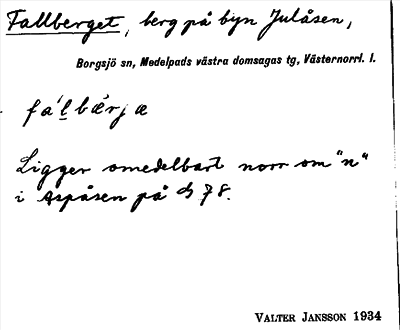 Fallberget, berg på byn Julåsen,
Borgsjö sn, Medelpads västra domsagas tg, Västernorrl. l.
fa´l bæ̀rjæ
Ligger omedelbart norr om "n"
i Aspåsen på 78.
VALTER JANSSON 1934